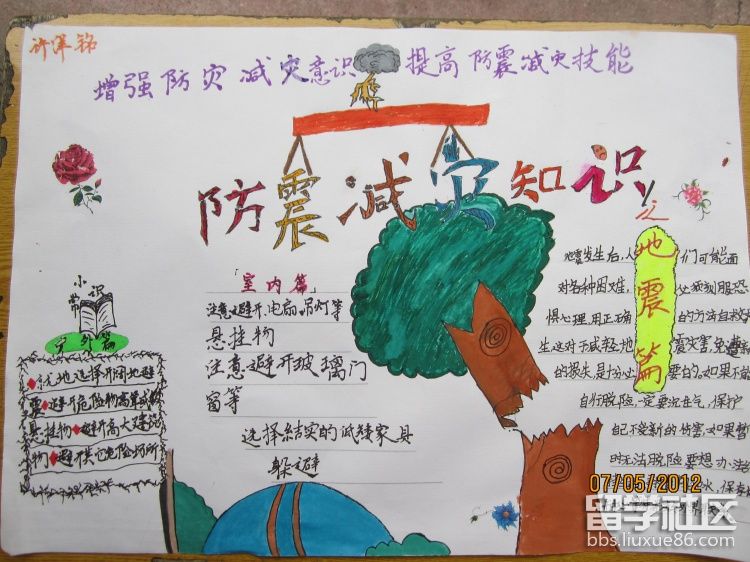 许泽铭
增强防灾减灾意识 提高防震减灾技能
防震减灾知识
之
地震篇
小常识
室外篇
就地选择开阔地避
震♦避开危险物高耸或
悬挂物♦避开高大建筑
物♦避开其它危险场所
室内篇
注意避开,电扇.吊灯等
悬挂物
注意避开玻璃门
窗等
选择结实的低矮家具
躲避
地震发生后,人们可能面
对各种困难,必须克服恐
惧心理,用正确的方法自救
生这对于减轻地震灾害,免
的损失,是十分必要的.如果不能
自行脱险,一定要沉住气,保护
自己不受新的伤害,如果暂
时无法脱险要想办法
水,保
07/05/2012
留学社区
bbs.liuxue86.com